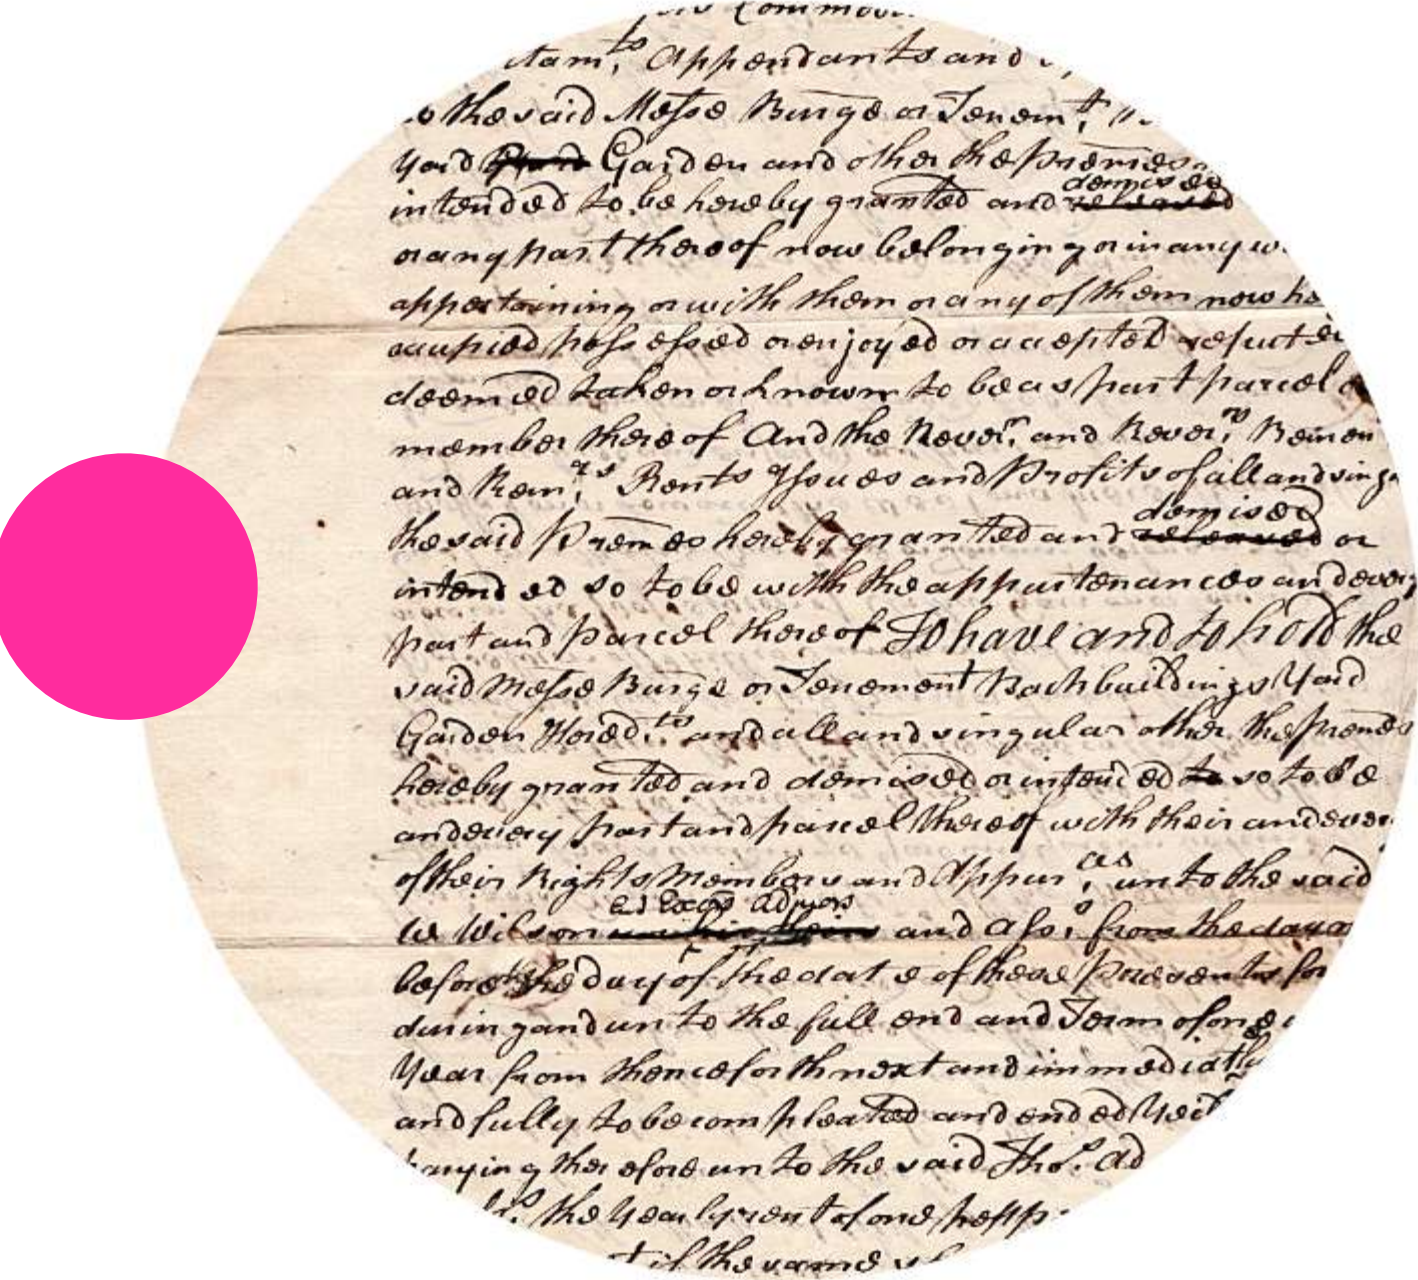 Commodi
tam.ts Appendants and
to the said Messe Burge or Tenemt.
Yard Garden and other the prem̄es
demised
intended to be hereby granted and released
or any part thereof now belonging or in any w
appertaining or with them or any of them now he
occupied possessed or enjoyed or accepted reputed
deemed taken or known to be as part parcel or
member thereof And the Rever.n and Rever.ns Remain
and Rem.rs Rents Issues and Profits of all and singu
demised
the said Prem̄es hereby granted and released or
intended so to be with the appurtenances and every
part and parcel thereof To have and to hold the
said Messe Burge or Tenement Backbuildings Yard
Garden Hered.ts and all and singular other the prem̄es
hereby granted and demised or intended to so to be
and every part and parcel thereof with their and ever
of their Rights Members and Appur.ces unto the said
Exors Admors
W Wilson and Ass.s from the day
before the day of the date of these presents for
during and unto the full end and Term of one
Year from thenceforth next and immediatly
and fully to be compleated and ended Yeild
paying therefore unto the said Tho.s Ad
the Yearly rent of one pepp
til the same